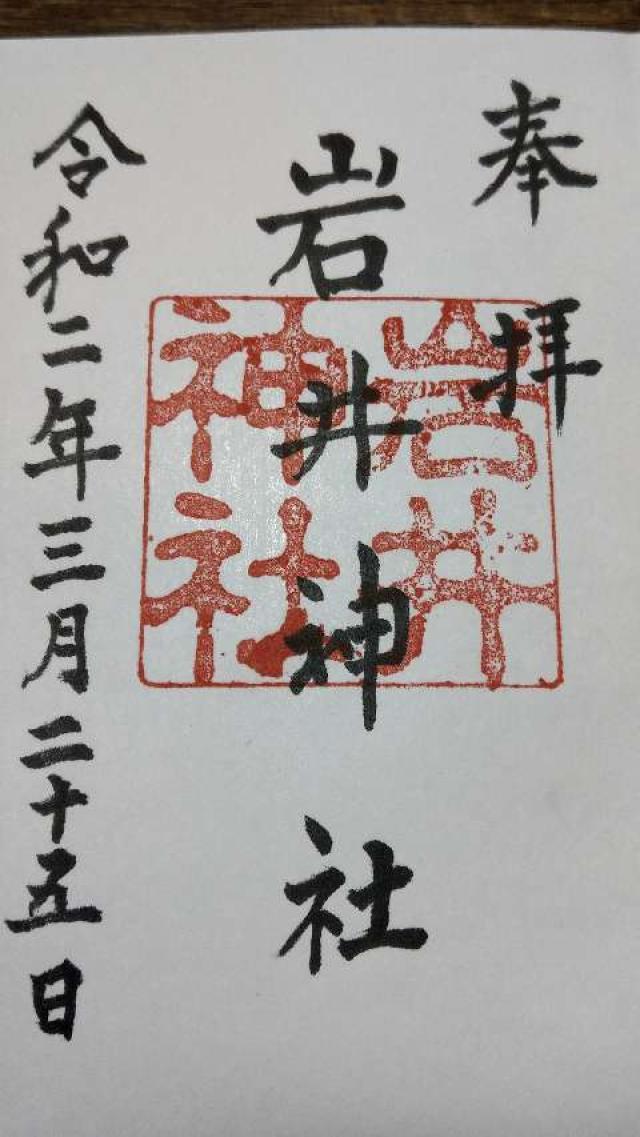 奉拝
岩井神社
岩井
神社
令和二年三月二十五日